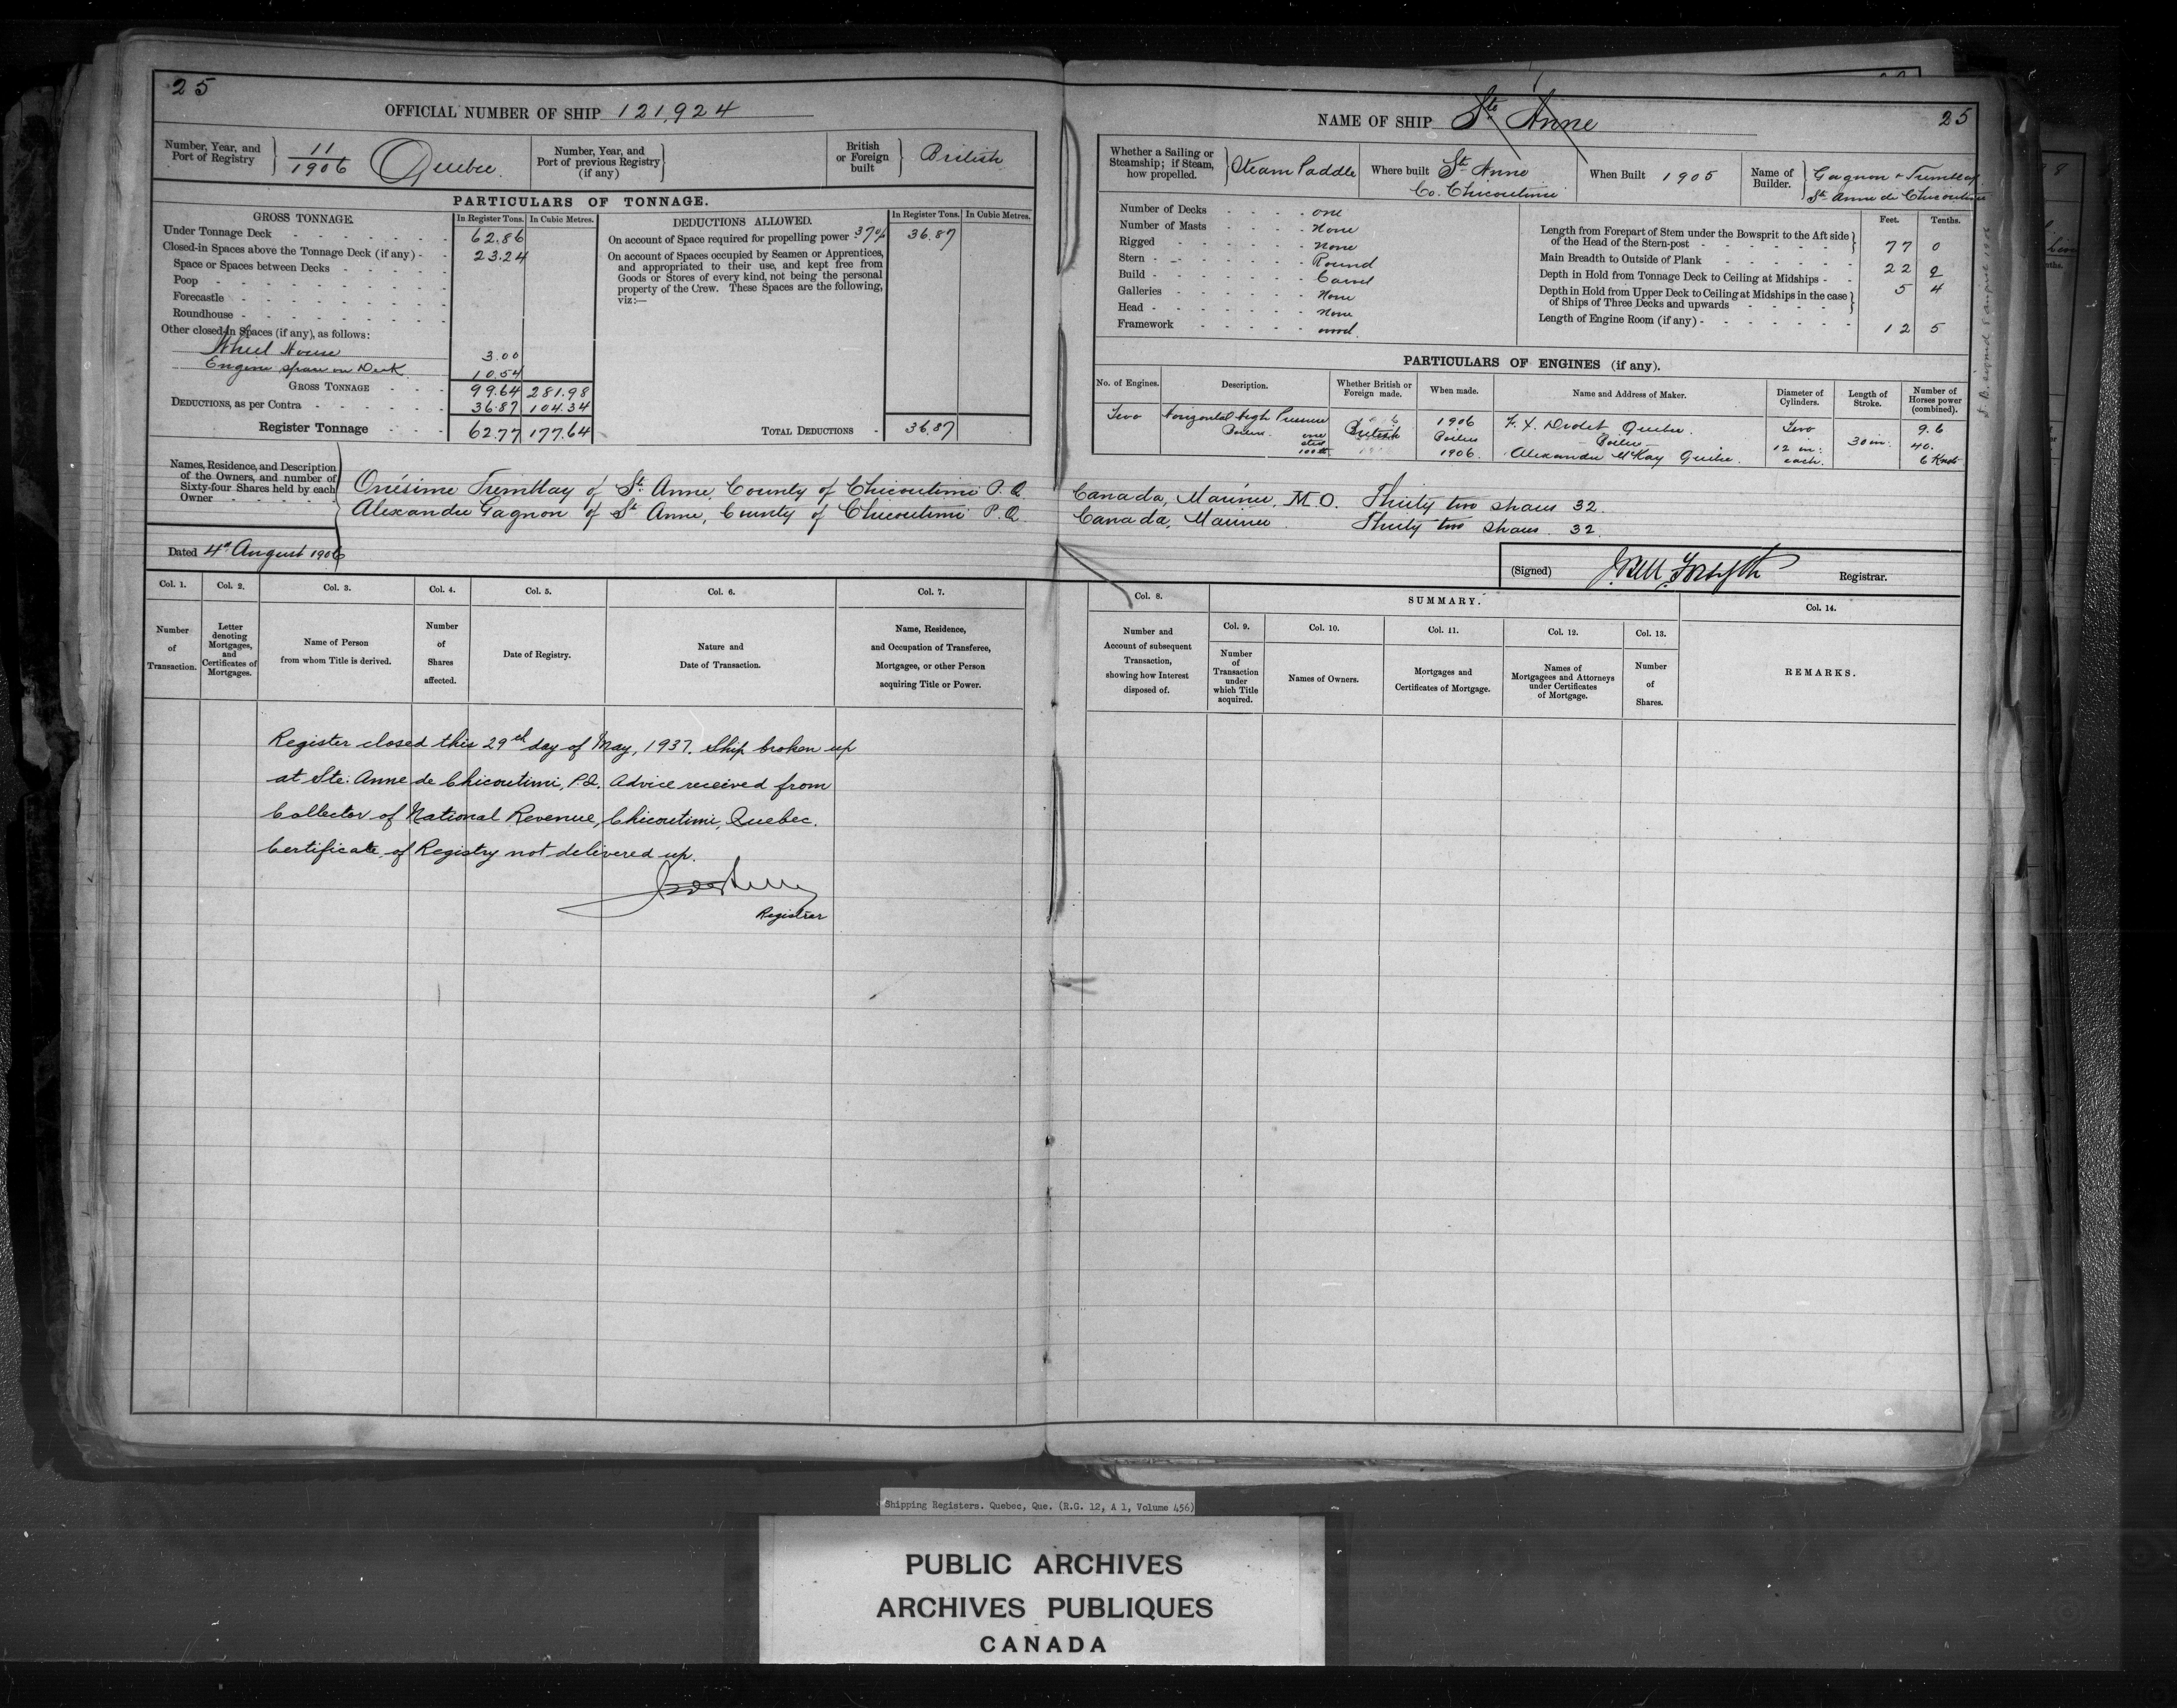 25
OFFICIAL NUMBER OF SHIP 121,924
Number, Year, and Port of Registry
11/1906 Quebec.
Number, Year, and Port of previous Registry (if any)
British or Foreign built
British
PARTICULARS OF TONNAGE.
GROSS TONNAGE. In Register Tons. In Cubic Metres.
Under Tonnage Deck 62.86
Closed-in Spaces above the Tonnage Deck (if any) - 23.24
Space or Spaces between Decks
Poop
Forecastle
Roundhouse
Other closed-in Spaces (if any), as follows:
Wheel House 3.00
Engine space on Deck 10.54
GROSS TONNAGE 99.64 281.98
DEDUCTIONS, as per Contra 36.87 104.34
Register Tonnage 62.77 177.64
DEDUCTIONS ALLOWED. In Register Tons. In Cubic Metres.
On account of Space required for propelling power 37% 36.87
On account of Spaces occupied by Seamen or Apprentices,
and appropriated to their use, and kept free from
Goods or Stores of every kind, not being the personal
property of the Crew. These Spaces are the following,
viz:—
TOTAL DEDUCTIONS - 36.87
NAME OF SHIP Ste Anne
25
Whether a Sailing or Steamship; if Steam, how propelled.
Steam Paddle
Where built St Anne
Co. Chicoutimi
When Built 1905
Name of Builder.
Gagnon & Tremblay
St Anne de Chicoutimi
Number of Decks one
Number of Masts None
Rigged none
Stern Round
Build Carvel
Galleries None
Head None
Framework wood.
Feet. Tenths.
Length from Forepart of Stem under the Bowsprit to the Aft side
of the Head of the Stern-post 77 0
Main Breadth to Outside of Plank 22 2
Depth in Hold from Tonnage Deck to Ceiling at Midships 5 4
Depth in Hold from Upper Deck to Ceiling at Midships in the case
of Ships of Three Decks and upwards
Length of Engine Room (if any) 12 5
PARTICULARS OF ENGINES (if any).
No. of Engines. Description. Whether British or Foreign made. When made. Name and Address of Maker. Diameter of Cylinders. Length of Stroke. Number of Horses power (combined).
Two Horizontal High Pressure 1906 F. X. Drolet Quebec. Two 9.6
Boilers. one British Boilers Boiler 12 in: 30 in. 40.
steel
100 lb. 1906. Alexander McKay Quebec. each. 6 Knots
Names, Residence, and Description
of the Owners, and number of
Sixty-four Shares held by each
Owner
Onésime Tremblay of St. Anne, County of Chicoutimi P.Q. Canada, Mariner, M.O. Thirty two shares 32.
Alexandre Gagnon of St Anne, County of Chicoutimi P.Q. Canada, Mariner Thirty two shares. 32.
Dated 4th August 1906
(Signed) J. Bell Forsyth Registrar.
Col. 1. Col. 2. Col. 3. Col. 4. Col. 5. Col. 6. Col. 7.
Number of Transaction.
Letter denoting Mortgages, and Certificates of Mortgages.
Name of Person from whom Title is derived.
Number of Shares affected.
Date of Registry.
Nature and Date of Transaction.
Name, Residence, and Occupation of Transferee, Mortgagee, or other Person acquiring Title or Power.
Col. 8.
Number and Account of subsequent Transaction, showing how Interest disposed of.
SUMMARY.
Col. 9. Col. 10. Col. 11. Col. 12. Col. 13. Col. 14.
Number of Transaction under which Title acquired.
Names of Owners.
Mortgages and Certificates of Mortgage.
Names of Mortgagees and Attorneys under Certificates of Mortgage.
Number of Shares.
REMARKS.
Register closed this 29th day of May, 1937. Ship broken up
at Ste. Anne de Chicoutimi, P.Q. Advice received from
Collector of National Revenue, Chicoutimi, Quebec.
Certificate of Registry not delivered up.
Registrar
Shipping Registers. Quebec, Que. (R.G. 12, A 1, Volume 456)
PUBLIC ARCHIVES
ARCHIVES PUBLIQUES
CANADA